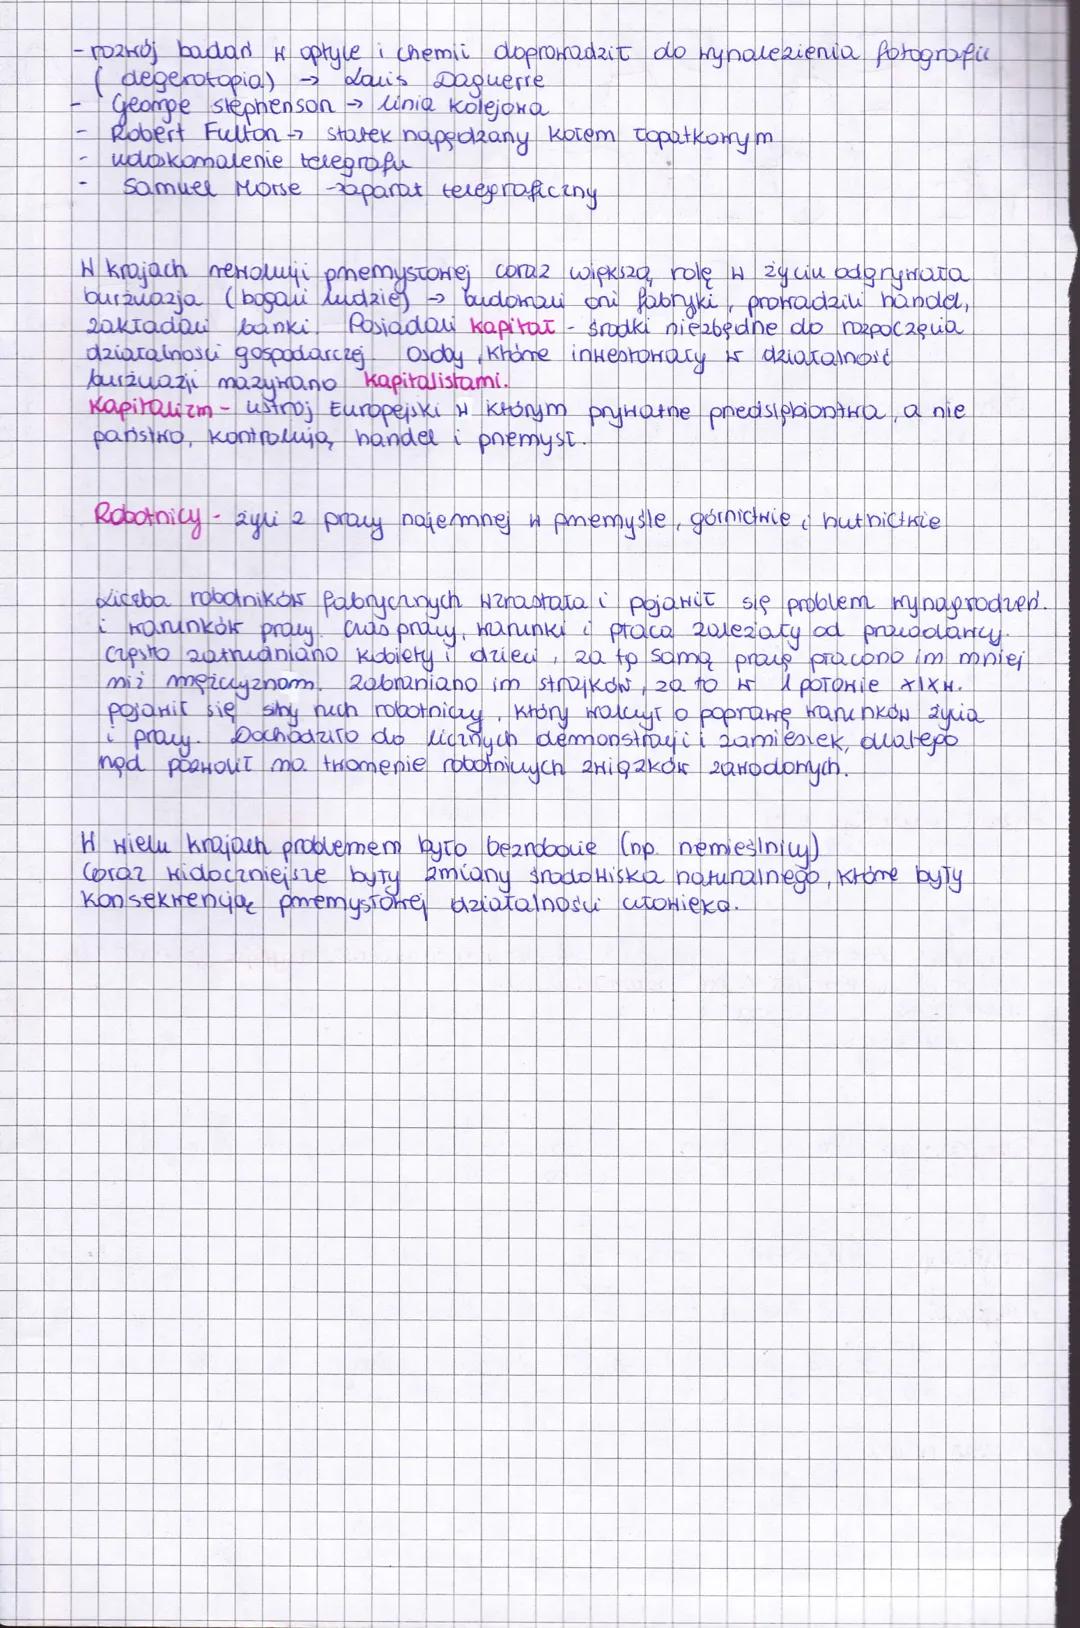 - rozwój badań w optyce i chemii doprowadził do wynalezienia fotografii
( degerotopia) → Louis Daguerre
- George Stephenson → linia kolejowa
- Robert Fulton → statek napędzany kołem łopatkowym
- udoskonalenie telegrafu
- Samuel Morse → aparat telegraficzny
W krajach rewolucji przemysłowej coraz większą rolę w życiu odgrywała
burżuazja (bogaci ludzie) → budowali oni fabryki, prowadzili handel,
zakładali banki. Posiadali kapitał - środki niezbędne do rozpoczęcia
działalności gospodarczej. Osoby, które inwestowały w działalność
burżuazji nazywano kapitalistami.
Kapitalizm - ustrój Europejski w którym prywatne przedsiębiorstwa, a nie
państwo, kontrolują handel i przemysł.
Robotnicy - żyli z pracy najemnej w przemyśle, górnictwie i hutnictwie
Liczba robotników fabrycznych wzrastała i pojawił się problem wynagrodzeń.
i warunków pracy. Czas pracy, warunki i płaca zależały od pracodawcy.
Często zatrudniano kobiety i dzieci, za tę samą pracę płacono im mniej
niż mężczyznom. Zabraniano im strajków, za to w 1 połowie XIX w.
pojawił się silny ruch robotniczy, który walczył o poprawę warunków życia
i pracy. Dochodziło do licznych demonstracji i zamieszek, dlatego
rząd pozwolił na tworzenie robotniczych związków zawodowych.
W wielu krajach problemem było bezrobocie (np. rzemieślnicy)
Coraz widoczniejsze były zmiany środowiska naturalnego, które były
konsekwencją przemysłowej działalności człowieka.